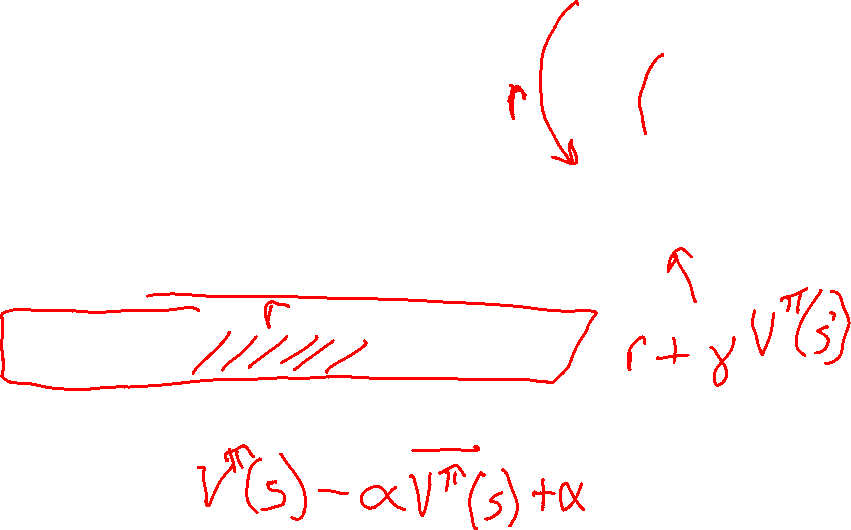 r
r
r + γ V^π(s')
V^π(s) - α V^π(s) + α